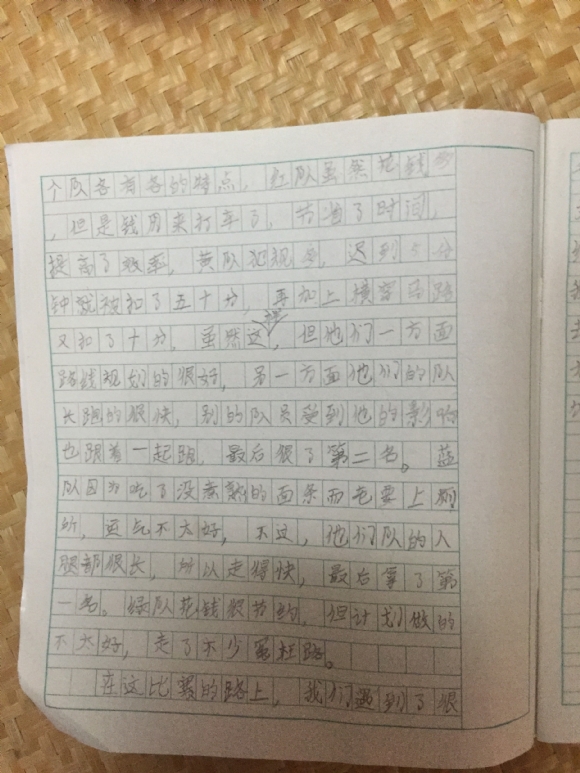 个队各有各的特点，红队虽然花钱多
，但是钱用来打车了，节省了时间，
提高了效率，黄队犯规多，迟到5分
钟就被扣了五十分，再加上横穿马路
又扣了十分，虽然这样，但他们一方面
路线规划的很好，另一方面他们的队
长跑的很快，别的队员受到他的影响
也跟着一起跑，最后很了第二名。蓝
队因为吃了没煮熟的面条而老要上厕
所，运气不太好，不过，他们队的人
腿都很长，所以走得快，最后拿了第
一名。绿队花钱很节约，但计划做的
不太好，走了不少冤枉路。
在这比赛的路上，我们遇到了很